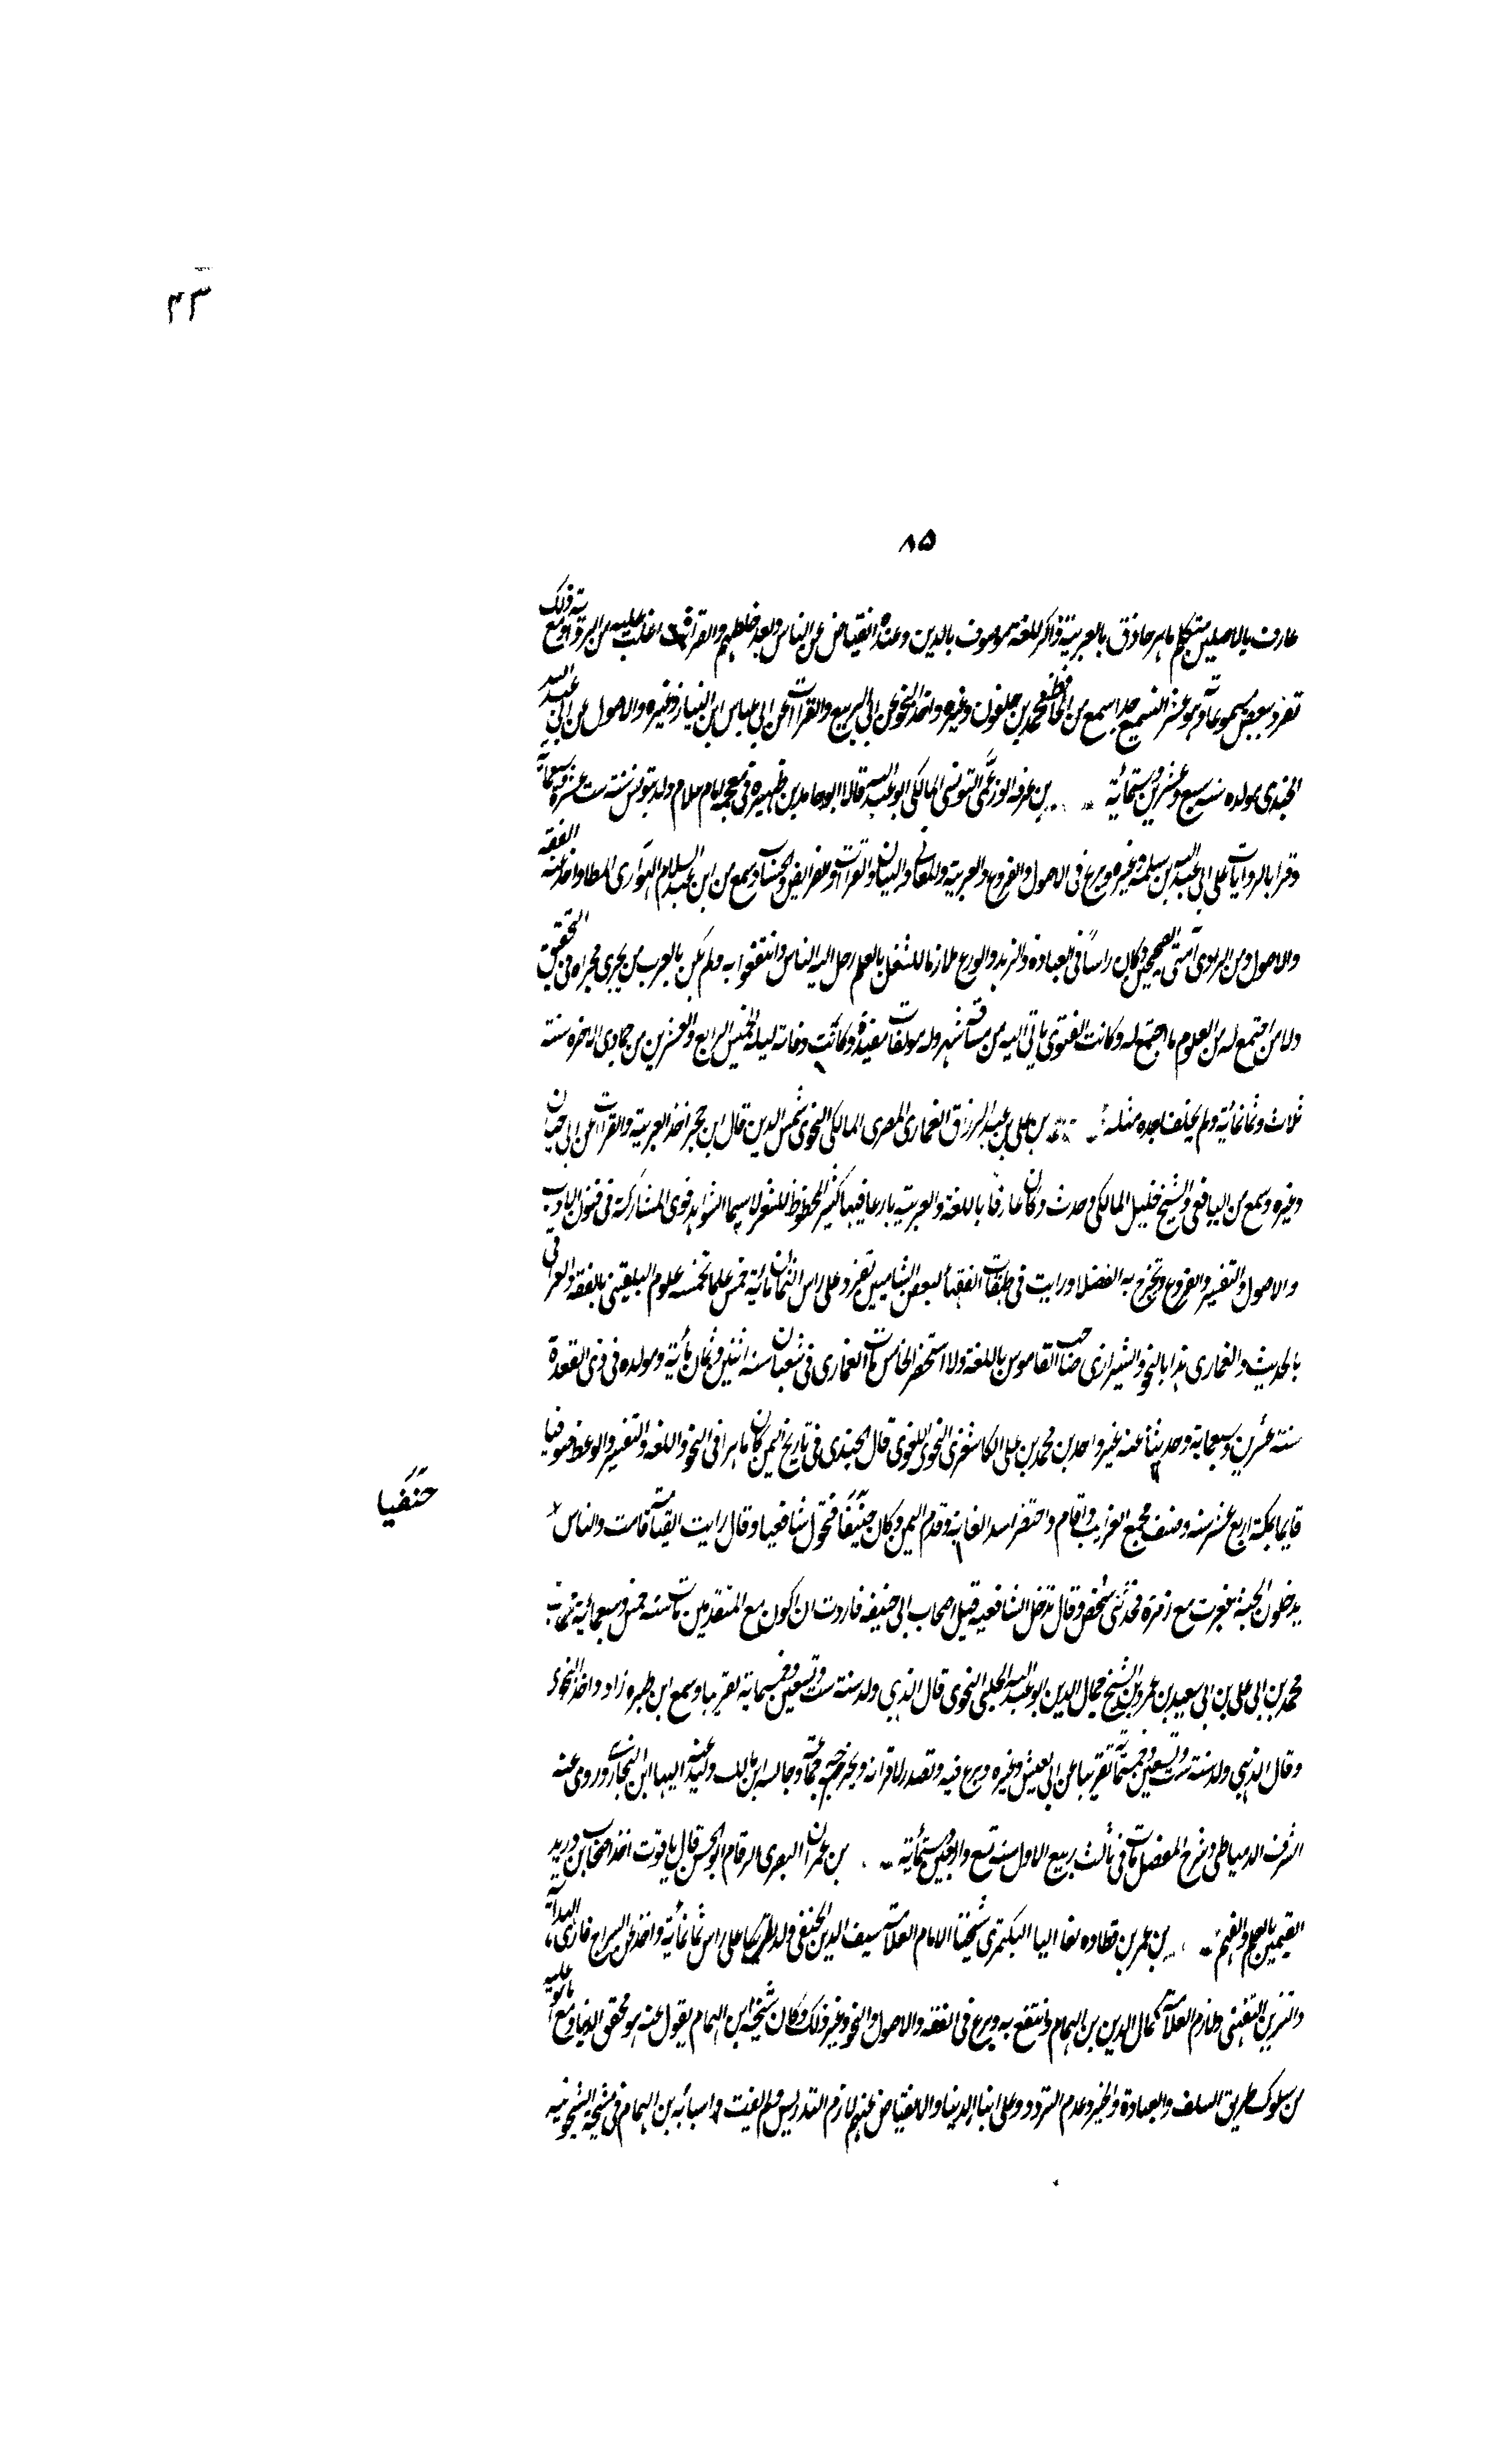 ٤٣
٨٥
عارف بالاصلين متكلم ماهر حاذق بالعربية ذاكر للغة موصوف بالدين وعنده انقباض عن الناس وبعد خلطهم والقراءات اغلب عليه من البر وتوقع ذلك
تفرد ببعض مسموعاته وهو عسر التسميع جدا سمع من الحافظ محمد بن جلفون وغيره واخذ النحو عن ابى الربيع والقراات عن ابى العباس ابن النيار وغيره والاصول عن ابى عبد الله
الجندى مولده سنة سبع وعشرين وستمائة بن عرفه الورغمى التونسى المالكى ابو عبد الله قال ابو حامد بن ظهيره فى معجمه امام علام ولد بتونس سنة ست عشره وسبعمائة
وقرا بالروايات على ابى عبد الله بن سلمه وغيره وبرع فى الاصول والفروع والعربية والمعانى والبيان والقراات والفرايض والحساب وسمع من ابن عبد السلام الهوارى الموطا واخذ عنه الفقه
والاصول ومن الوادى آشى الصحيحين وكان راسا فى العبادة والزهد والورع ملازما للشغل بالعلم رحل اليه الناس وانتفعوا به ولم يكن بالغرب من يجرى مجراه فى التحقيق
ولا من اجتمع له من العلوم ما اجتمع له وكانت الفتوى ياتى اليه من مسافة شهر وله مولفات مفيدة وكانت وفاته ليلة الخميس الرابع والعشرين من جمادى الاخره سنة
ثلاث وثمانمائة ولم يخلف بعده مثله بن على بن عبد الرزاق الغمارى المصرى المالكى النحوى شمس الدين قال ابن حجر اخذ العربية والقراات عن ابى حيان
وغيره وسمع من اليافعى والشيخ خليل المالكى وحدث وكان عارفا باللغة والعربية بارعا فيها كثير المحفوظ للشعر لاسيما الشواهد قوى المشاركة فى فنون الادب
والاصول والتفسير والفروع وتخرج به الفضلا ورايت فى طبقات الفقها لبعض الشاميين تفرد على راس الثمان مائة خمس علما بخمسه علوم البلقينى بالفقه والعراقى
بالحديث والغمارى هذا بالنحو والشيرازى صاحب القاموس باللغة ولا استحضر الخامس مات الغمارى فى شعبان سنة اثنين وثمان مائة ومولده فى ذى القعدة
سنة عشرين وسبعماية وحدثنا عنه غير واحد بن محمد بن على الكاشغرى النحوى اللغوى قال الجندى فى تاريخ اليمن كان ماهرا فى النحو واللغة والتفسير والوعظ صوفيا
قايما بمكة اربع عشر سنة وصنف مجمع الغرايب واقام واختصر اسد الغابة وقدم اليمن وكان حنيفا فتحول شافعيا وقال رايت القيامة قامت والناس
حنفيا
يدخلون الجنة فعبرت مع زمرة فجذبنى شخص وقال تدخل الشافعيه قبل اصحاب ابى حنيفه فاردت ان اكون مع المتقدمين مات سنة خمس وسبعمائة
محمد بن ابى على بن ابى سعيد بن عمرون الشيخ جمال الدين ابو عبد الله الحلبى النحوى قال الذهبى ولد سنة ست وتسعين وخمسماية تقريبا وسمع ابن طبرزاد واخذ النحو
وقال الذهبى ولد سنة ست وتسعين وخمسمائة تقريبا عن ابن يعيش وغيره وبرع فيه وتصدر لاقرائه وتخرج به جماعة وجالسه ابن مالك واخذ عنه البها ابن النحاس وروى عنه
الشرف الدمياطى وشرح المفصل مات فى ثالث ربيع الاول سنة تسع واربعين وستمائة بن عمران البصرى الرقام ابو الحسن قال ياقوت احد اصحاب ابن دريد
القيمين بالعلم والفهم بن عمر بن قطلوبغا اليا البكتمرى شيخنا الامام العلامة سيف الدين الحنفى ولد تقريبا على راس ثمانمائة واخذ عن السراج قارى الهداية
والزين التفهنى ولازم العلامة كمال الدين بن الهمام وانتفع به وبرع فى الفقه والاصول والنحو وغير ذلك وكان شيخه ابن الهمام يقول عنه هو محقق الديار مع ما هو عليه
من سلوك طريق السلف والعبادة والخير وعدم التردد وعلى ابنا الدنيا والانقباض عنهم لازم التدريس ولم يفت واستنابه بن الهمام فى مشيخة الشيخونيه